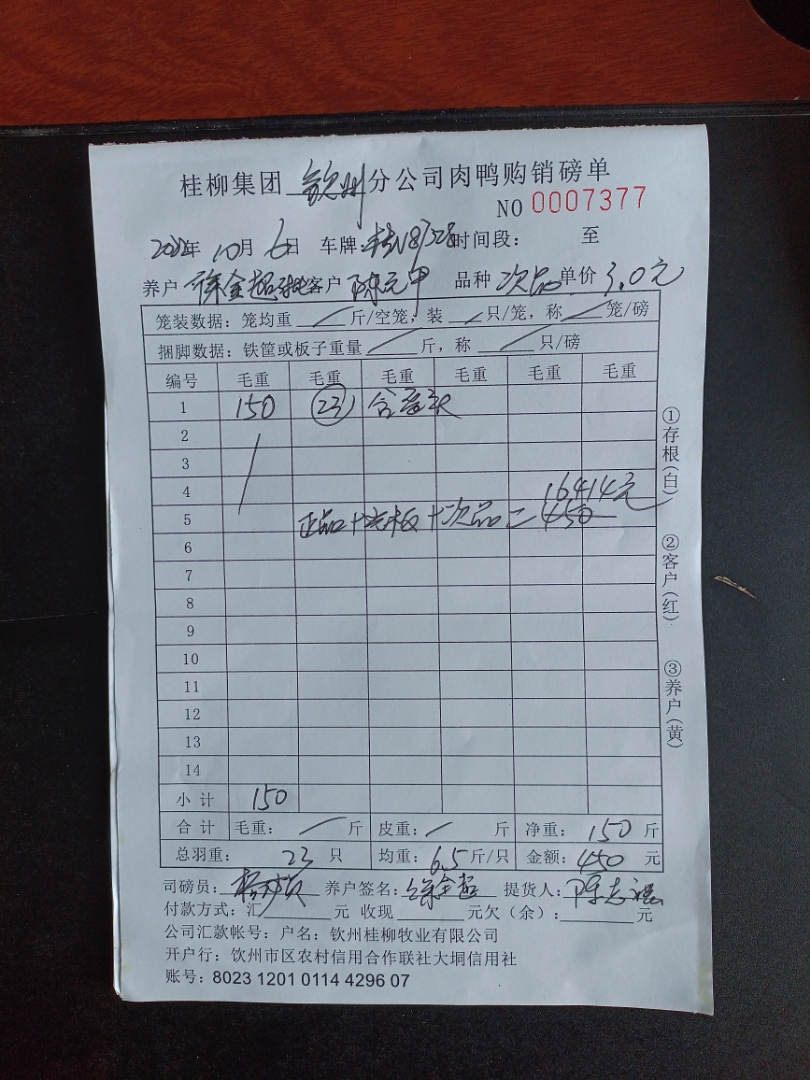 桂柳集团 钦州 分公司肉鸭购销磅单
NO 0007377
2022年 10月 6日 车牌: 时间段: 至
养户 徐金超 客户 陈元甲 品种 次品 单价 3.0元
笼装数据：笼均重 斤/空笼，装 只/笼，称 笼/磅
捆脚数据：铁筐或板子重量 斤，称 只/磅
编号 毛重 毛重 毛重 毛重 毛重 毛重
1 150 23 含
2
3
4 16414元
5 正品+毛板+次品=450
6
7
8
9
10
11
12
13
14
小计 150
合计 毛重： 斤 皮重： 斤 净重： 150 斤
总羽重： 23 只 均重： 6.5 斤/只 金额： 450 元
司磅员： 养户签名：徐金超 提货人：陈志
付款方式：汇 元 收现 元欠（余）： 元
公司汇款帐号：户名：钦州桂柳牧业有限公司
开户行：钦州市区农村信用合作联社大垌信用社
账号：8023 1201 0114 4296 07
①存根(白)
②客户(红)
③养户(黄)